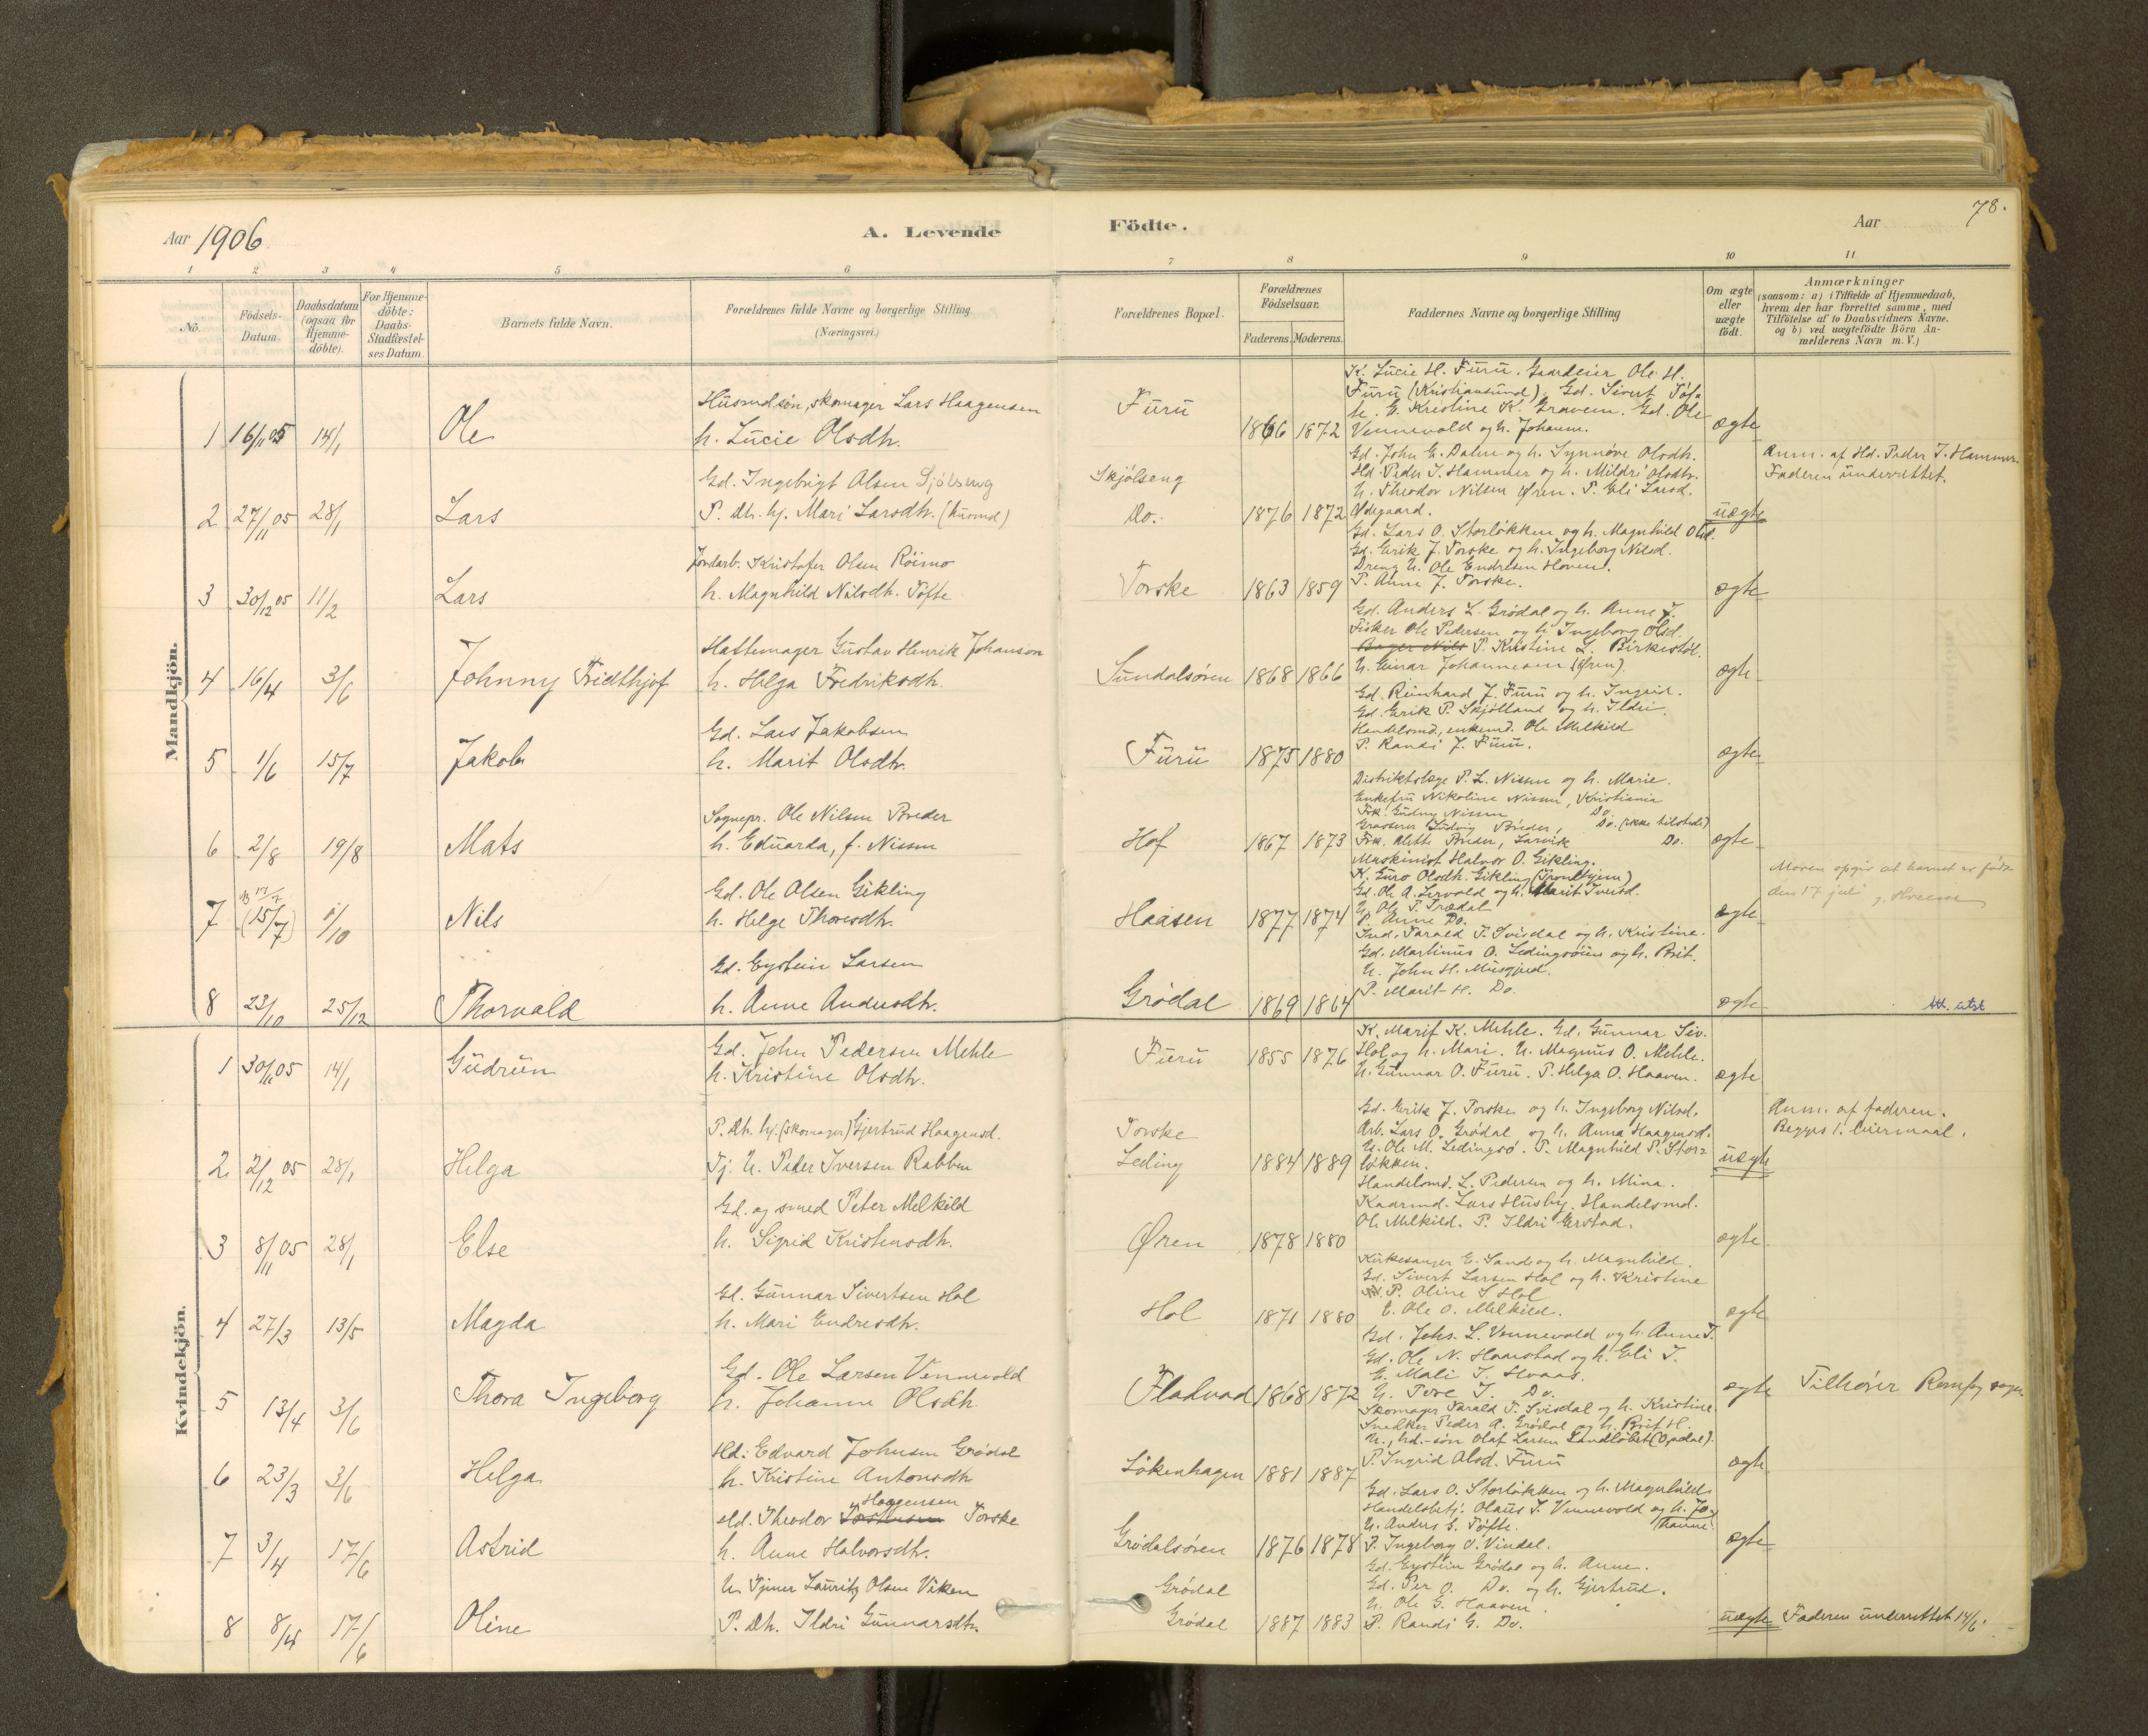 Aar 1906
A. Levende Födte.
Aar
78.
1 2 3 4 5 6 7 8 9 10 11
No.
Födsels-Datum.
Daabsdatum (ogsaa for Hjemme-döbte).
For Hjemme-döbte: Daabs-Stadfæstel-ses Datum.
Barnets fulde Navn.
Forældrenes fulde Navne og borgerlige Stilling (Næringsvei.)
Forældrenes Bopæl.
Forældrenes Födselsaar.
Faderens. Moderens.
Faddernes Navne og borgerlige Stilling
Om ægte eller uægte födt.
Anmærkninger
(saasom: a) i Tilfælde af Hjemmedaab,
hvem der har forrettet samme, med
Tilföielse af to Daabsvidners Navne,
og b) ved uægtefödte Börn An-
melderens Navn m. V.)
Mandkjön.
Husmdsön, skomager Lars Haagensen
1 16/11 05 14/1 Ole h. Lucie Olsdtr.
Furu 1866 1872 ægte
K. Lucie H. Furu. Gaardeier Ole H.
Furu (Kristiansund), Gd. Sivert Töf-
te. G. Kristine K. Gravem. Gd. Ole
Vennevold og h. Johanne.
Gd. Ingebrigt Olsen Sjölseng
2 27/11 05 28/1 Lars P. Dtr. hj. Mari Larsdtr. (husmd)
Skjölseng
Do. 1876 1872 uægte
Gd. John E. Dalen og h. Synnöve Olsdtr.
Hd. Peder J. Hammer og h. Mildri Olsdtr.
U. Theodor Nilsen Øren. P. Eli Larsd.
Ødegaard.
Anm. af Hd. Peder J. Hammer.
Faderen underrettet.
Jordarb. Kristofer Olsen Röimo
3 30/12 05 11/2 Lars h. Magnhild Nilsdtr. Töfte
Torske 1863 1859 ægte
Gd. Lars O. Storløkken og h. Magnhild Olsd.
Gd. Erik J. Torske og h. Ingeborg Nilsd.
Dreng U. Ole Endresen Hoven.
P. Anne J. Torske.
Hattemager Gustav Henrik Johanson
4 16/4 3/6 Johnny Fridthjof h. Helga Fredriksdtr.
Sundalsören 1868 1866 ægte
Gd. Anders L. Grödal og h. Anne J.
Fisker Ole Pedersen og h. Ingeborg Olsd.
Bager Nils P. Kristine L. Birkestöl.
U. Einar Johannesen (Øren)
Gd. Lars Jakobsen
5 1/6 15/7 Jakob h. Marit Olsdtr.
Furu 1875 1880 ægte
Gd. Reinhard J. Furu og h. Ingrid.
Gd. Erik P. Skjölland og h. Ildri.
Handelsmd., enkemd. Ole Melkild
P. Randi J. Furu.
Sognepr. Ole Nilsen Breder
6 2/8 19/8 Mats h. Eduarda, f. Nissen
Hof 1867 1873 ægte
Distriktslæge P. L. Nissen og h. Marie.
Enkefru Nikoline Nissen, Kristiania
Frk. Gudny Nissen Do.
Grosserer Ludvig Breder, Do. (ikke tilstede)
Frk. Alette Breder, Larvik Do.
Gd. Ole Olsen Gikling
7 17/7 (15/7) 1/10 Nils h. Helge Thoresdtr.
Haasen 1877 1874 ægte
Maskinist Halvor O. Gikling.
K. Guro Olsdtr. Gikling (Trondhjem)
Gd. Ole A. Lervold og h. Marit Iversd.
U. Ole T. Trædal
P. Anne Do.
Moren opgir at barnet er födt
den 17 juli
Gd. Eystein Larsen
8 23/10 25/12 Thorvald h. Anne Andersdtr.
Grödal 1869 1864 ægte
Ind. Tarald T. Svisdal og h. Kristine.
Gd. Martinus O. Ledingsöien og h. Brit.
U. John H. Musgjerd.
P. Marit H. Do.
Att. utst
Kvindekjön.
Gd. John Pedersen Mehle
1 30/11 05 14/1 Gudrun h. Kristine Olsdtr.
Furu 1855 1876 ægte
K. Marit K. Mehle. Gd. Gunnar Siv.
Hol og h. Mari. U. Magnus O. Mehle.
U. Gunnar O. Furu. P. Helga O. Haaven.
P. Dtr. hj. (skomager) Gjertrud Haagensd.
2 2/12 05 28/1 Helga Tj. U. Peder Iversen Rabben
Torske
Leding 1884 1889 uægte
Gd. Erik J. Torske og h. Ingeborg Nilsd.
Arb. Lars O. Grödal og h. Anna Haagensd.
U. Ole M. Ledingsö. P. Magnhild P. Stor-
lökken.
Anm. af faderen.
Begges 1. leiermaal.
Gd. og smed Peter Melkild
3 8/11 05 28/1 Else h. Sigrid Kristensdtr.
Øren 1878 1880 ægte
Handelsmd. L. Pedersen og h. Mina.
Kaarmd. Lars Husby. Handelsmd.
Ole Melkild. P. Ildri Gerstad.
Gd. Gunnar Sivertsen Hol
4 27/3 13/5 Magda h. Mari Endresdtr.
Hol 1871 1880 ægte
Kirkesanger E. Sande og h. Magnhild.
Gd. Sivert Larsen Hol og h. Kristine
P. Oline S Hol
E. Ole O. Melkild.
Gd. Ole Larsen Vennevold
5 13/4 3/6 Thora Ingeborg h. Johanne Olsdtr.
Fladvad 1868 1872 ægte
Gd. Johs. L. Vennevold og h. Anne T.
Gd. Ole N. Hoaastad og h. Eli T.
G. Mali T. Hoaas.
U. Tore T. Do.
Tilhörer Romfo sogn
Hd. Edvard Johnsen Grödal
6 23/3 3/6 Helga h. Kristine Antonsdtr
Lökenhagen 1881 1887 ægte
Skomager Tarald T. Svisdal og h. Kristine
Snedker Peder A. Grödal og h. Brit H.
U., Gd.-sön Olaf Larsen Sandlöbet (Opdal).
P. Ingrid Olsd. Furu
Hd. Theodor Torstensen Haagensen Torske
7 3/4 17/6 Astrid h. Anne Halvorsdtr.
Grödalsören 1876 1878 ægte
Gd. Lars O. Storlökken og h. Magnhild
Handelsbetj. Olaus T. Vennevold og h. Jo-
hanne.
U. Anders G. Töfte.
P. Ingeborg O. Vindal.
U. Tjener Lauritz Olsen Viken
8 8/4 17/6 Oline P. Dtr. Ildri Gunnarsdtr.
Grödal
Grödal 1887 1883 uægte
Gd. Eystein Grödal og h. Anne.
Gd. Per O. Do. og h. Gjertrud.
U. Ole G. Haaven.
P. Randi G. Do.
Faderen underrettet 14/6.